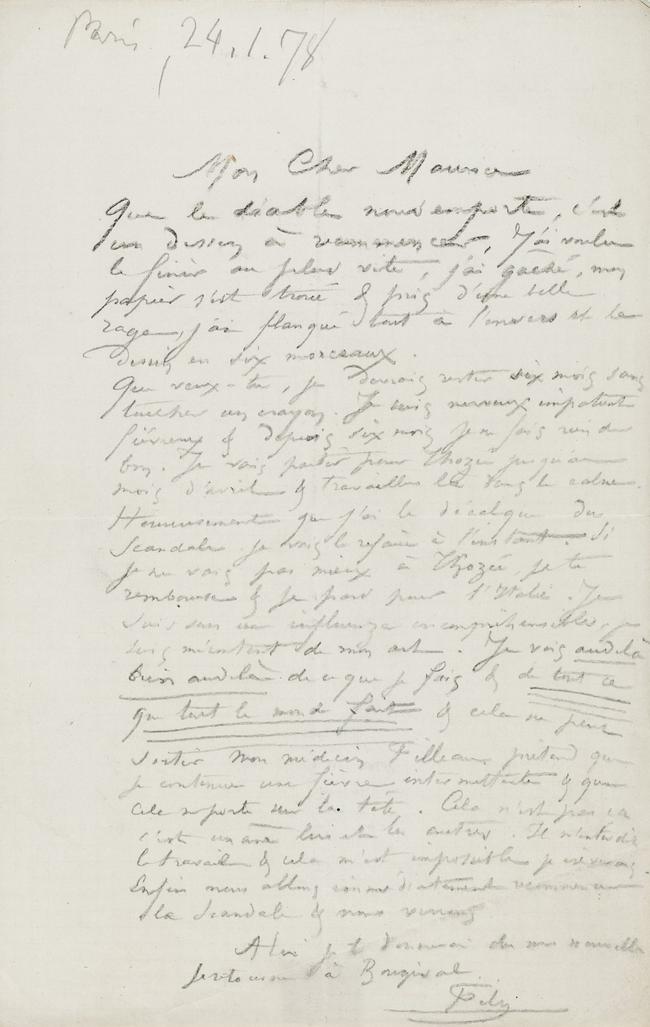 Paris, 24.1.78
Mon Cher Maurice
Que le diable nous emporte, c'est
un dessin à recommencer, J'ai voulu
le finir au plus vite, j'ai gaché, mon
papier s'est troué & pris d'une belle
rage, j'ai flanqué tout à l'envers et le
dessin en six morceaux.
Que veux-tu, je devrais rester six mois sans
toucher un crayon. Je suis nerveux impotent
fiévreux & depuis six mois je ne fais rien de
bon. Je vais partir pour Thozée jusqu'au
mois d'avril & travailler là dans le calme.
Heureusement que j'ai le décalque du
Scandale. je vais le refaire à l'instant. Si
je ne vais pas mieux à Thozée, je te
rembourse & je pars pour l'Italie. Je
suis sous une influenza incompréhensible, je
suis mécontent de mon art. Je vois au delà
bien au delà de ce que je fais & de tout ce
que tout le monde fait & cela ne peut
sortir Mon médecin Filleau prétend que
je continue une fièvre intermittente & que
cela se porte sur la tête. Cela n'est pas
c'est un âne lui et les autres. Il m'interdit
le travail & cela m'est impossible je
Enfin nous allons immédiatement recommencer
la Scandale & nous verrons
je te donnerai de mes nouvelles
je retourne à Bougival
Fély